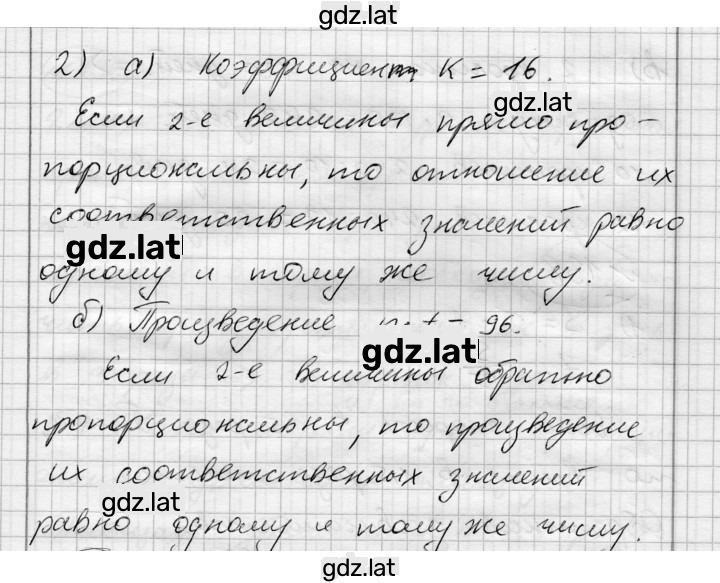 gdz.lat
2) а) Коэффициент К = 16.
gdz.lat
Если 2-е величины прямо про-
порциональны, то отношение их
соответственных значений равно
gdz.lat
одному и тому же числу.
б) Произведение = 96.
gdz.lat
Если 2-е величины обратно
пропорциональны, то произведение
их соответственных значений
gdz.lat
равно одному и тому же числу.
gdz.lat